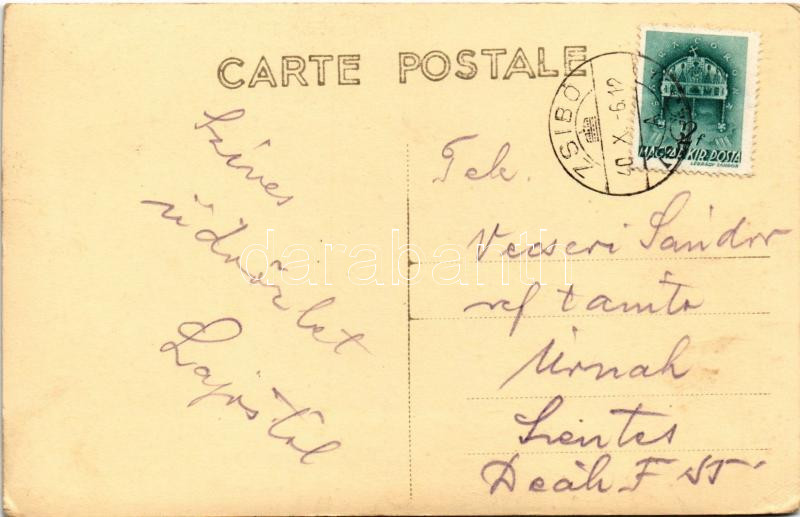 CARTE POSTALE
ZSIBÓ
40. X. -6. 12
MAGYAR KIR. POSTA
LÉGRÁDY SÁNDOR
Szíves
üdvözlet
Lajostól
Tek.
Vecseri Sándor
ref tanító
Úrnak
Szentes
Deák F
darabanth